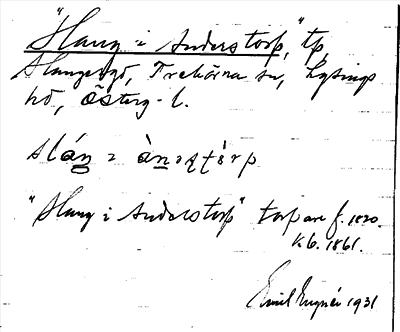 "Slang i Anderstorp," tp
Slangeryd, Trehörna sn, Lysings
hd, Österg. l.
sláŋ ɪ àn̲əʂtɵrp
"Slang i Anderstorp" torpare f. 1820.
k. b. 1861.
Emil Engnér 1931